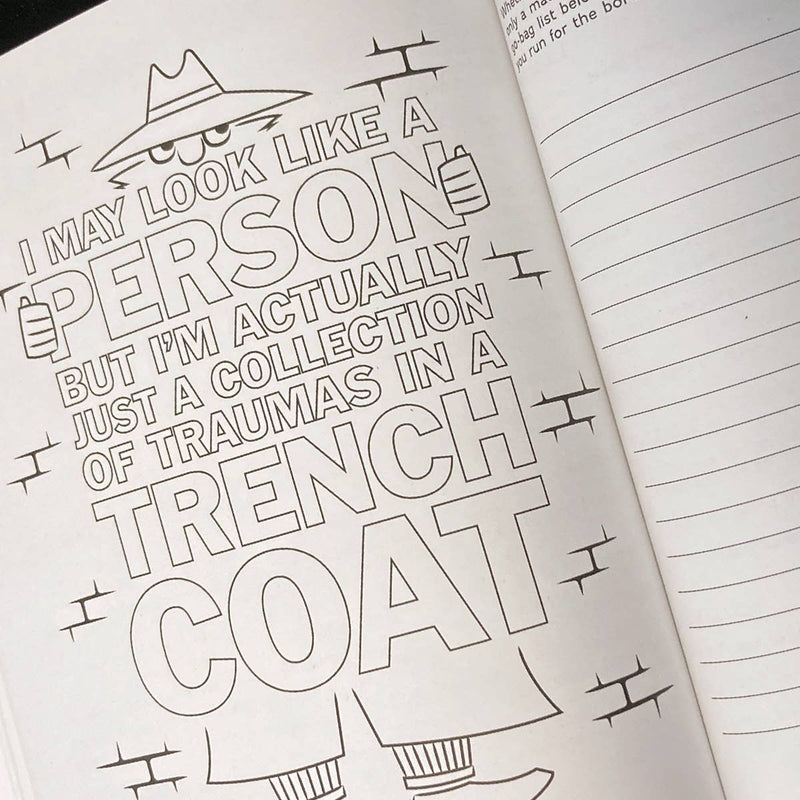 I MAY LOOK LIKE A
PERSON
BUT I'M ACTUALLY
JUST A COLLECTION
OF TRAUMAS IN A
TRENCH
COAT
only a ma
go-bag list bel
you run for the bo